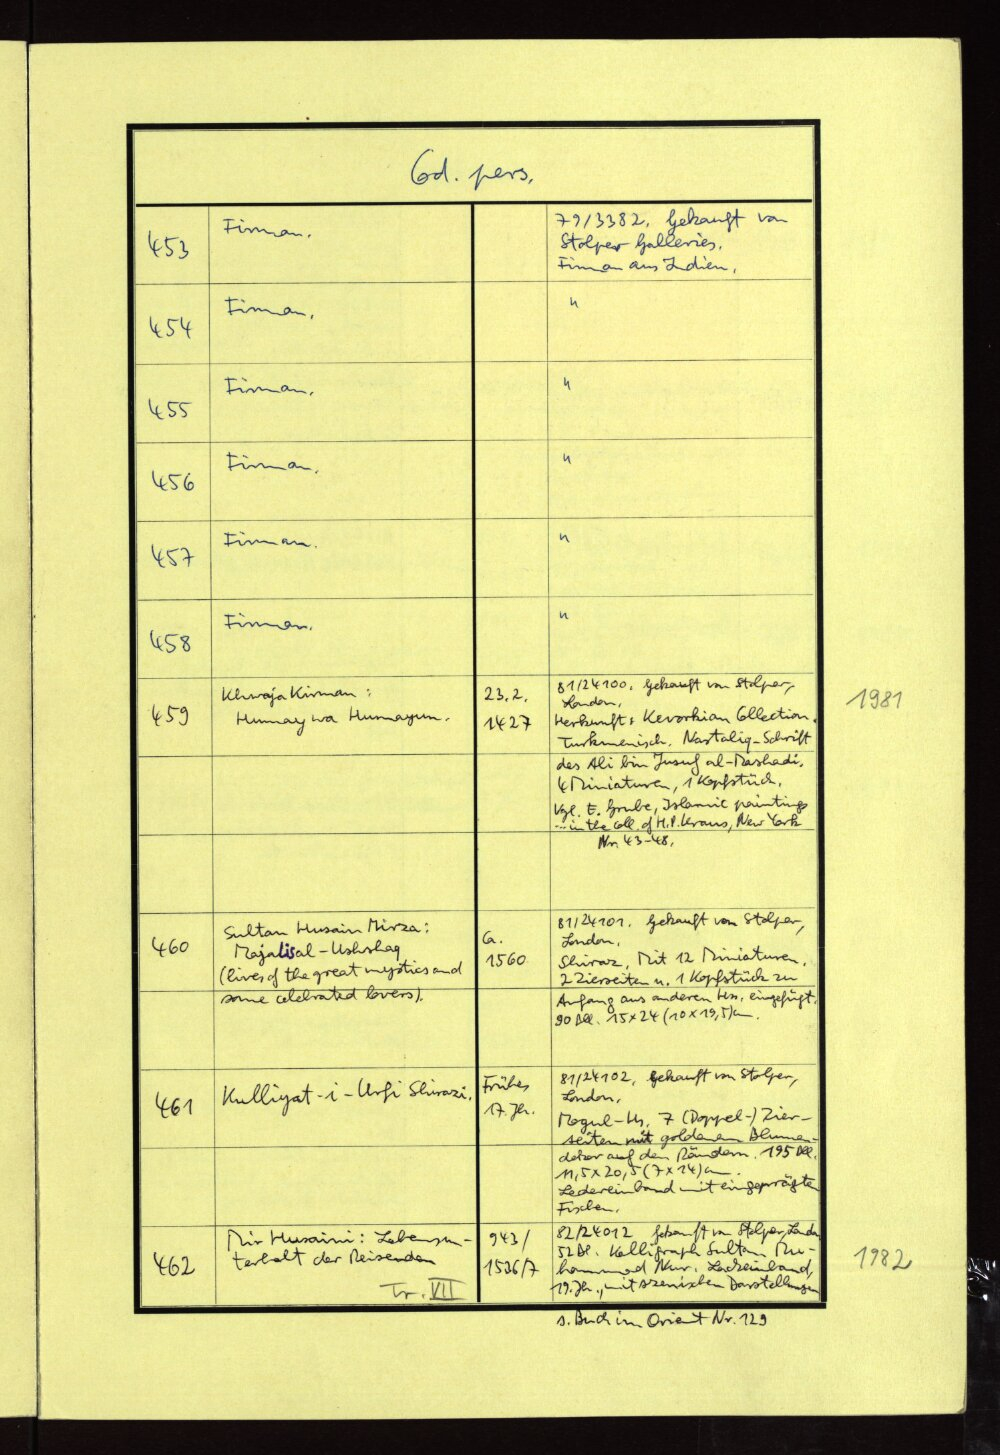 Cod. pers.
453
Firman.
79/3382. Gekauft von
Stolper Galleries.
Firman aus Indien.
454
Firman.
"
455
Firman.
"
456
Firman.
"
457
Firman.
"
458
Firman.
"
459
Khwaja Kirman:
Humay wa Humayun.
23.2.
1427
81/24100. Gekauft von Stolper,
London.
Herkunft: Kevorkian Collection.
Turkmenisch. Nastaliq-Schrift
des Ali bin Jusuf al-Mashadi.
4 Miniaturen, 1 Kopfstück.
Vgl. E. Grube, Islamic paintings
... in the coll. of H.P. Kraus, New York
Nr. 43-48.
1981
460
Sultan Husain Mirza:
Majalis al-Ushshaq
(lives of the great mystics and
some celebrated lovers).
Ca.
1560
81/24101. Gekauft von Stolper,
London.
Shiraz, Mit 12 Miniaturen.
2 Zierseiten u. 1 Kopfstück zu
Anfang aus anderen Hss. eingefügt.
90 Bll. 15x24 (10x19,5)cm.
461
Kulliyat-i-Urfi Shirazi.
Frühes
17. Jh.
81/24102. Gekauft von Stolper,
London.
Mogul-Hs. 7 (Doppel-) Zier-
seiten mit goldenem Blumen-
dekor auf den Rändern. 195 Bll.
11,5x20,5 (7x14)cm.
Ledereinband mit eingeprägten
Fischen.
462
Mir Husaini: Lebensun-
terhalt der Reisenden
Tr. VII
943/
1536/7
82/24012 Gekauft von Stolper, London
52 Bl. Kalligraph Sultan Mu-
hammad Nur. Ledereinband,
19. Jh., mit szenischen Darstellungen
1982
s. Buch im Orient Nr. 129